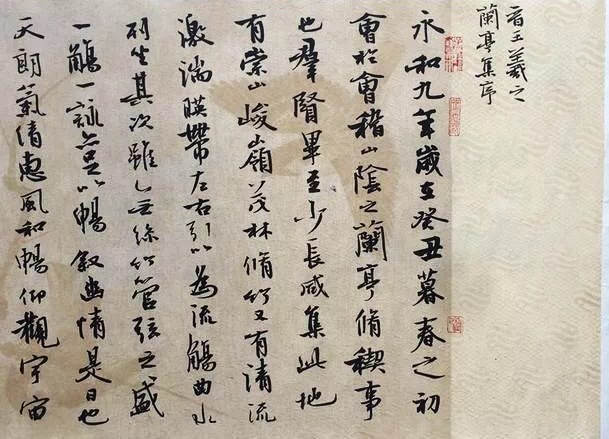 晋王羲之
蘭亭集序
永和九年歲在癸丑暮春之初
會於會稽山陰之蘭亭脩稧事
也羣賢畢至少長咸集此地
有崇山峻嶺茂林脩竹又有清流
激湍暎帶左右引以為流觴曲水
列坐其次雖無絲竹管弦之盛
一觴一詠亦足以暢叙幽情是日也
天朗氣清惠風和暢仰觀宇宙